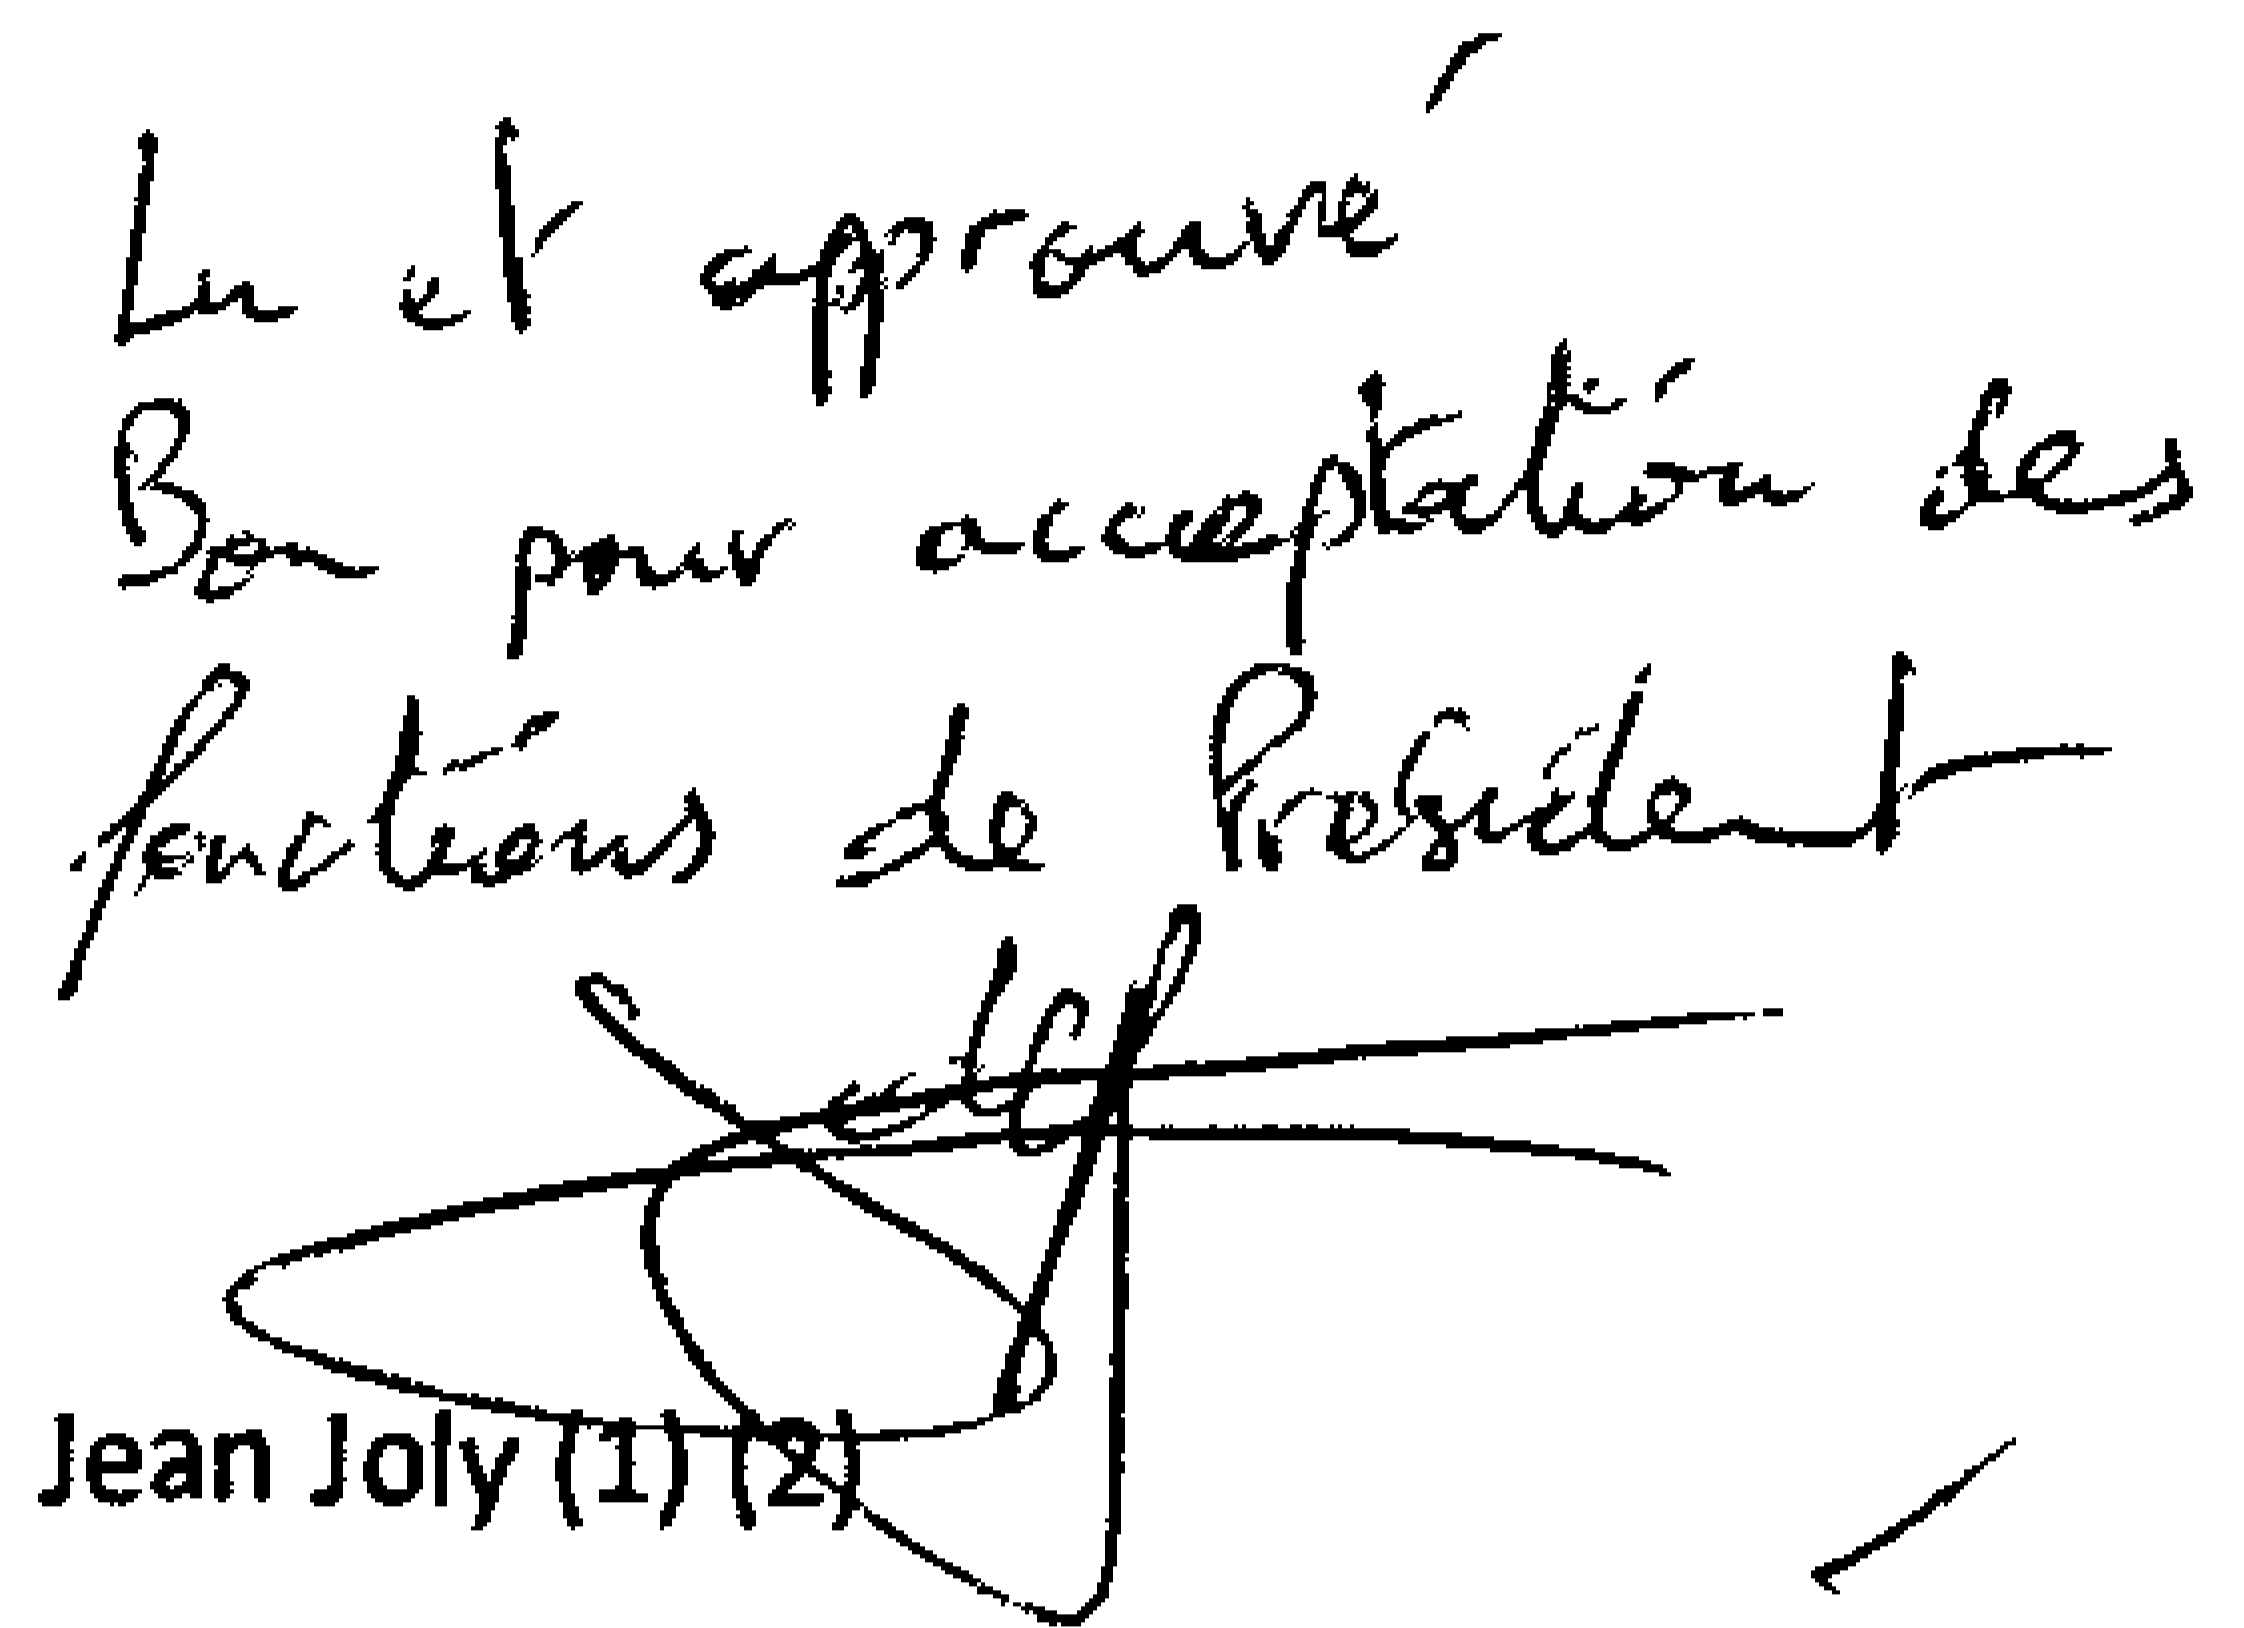 Lu et approuvé
Bon pour acceptation des
fonctions de Président
Jean Joly (1) (2)